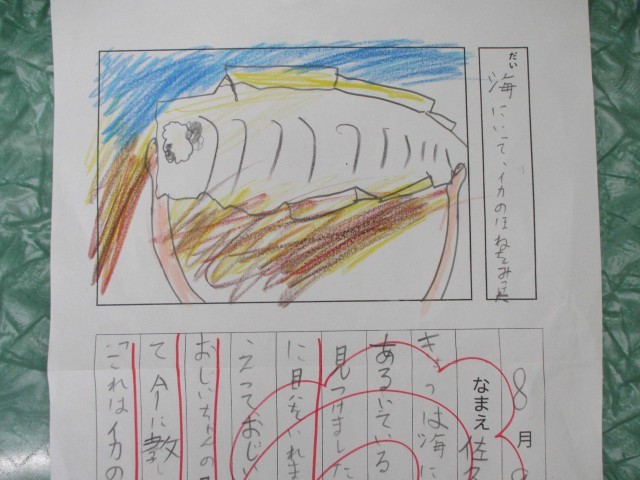 だい
海にいて、イカのほねをみつた
8月
なまえ 佐
きょうは海に
あるいている
見つけました
に貝をいれま
えって、おじい
おじいちゃんの
てAIに教
「これはイカの